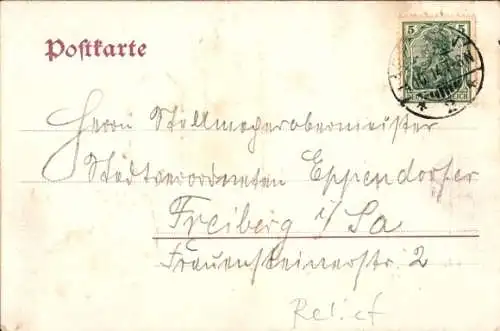 Postkarte
5 5
Herrn Stellmacherobermeister
Stadtverordneten Eppendorfer
Freiberg i/Sa
Frauensteinerstr. 2
Relief